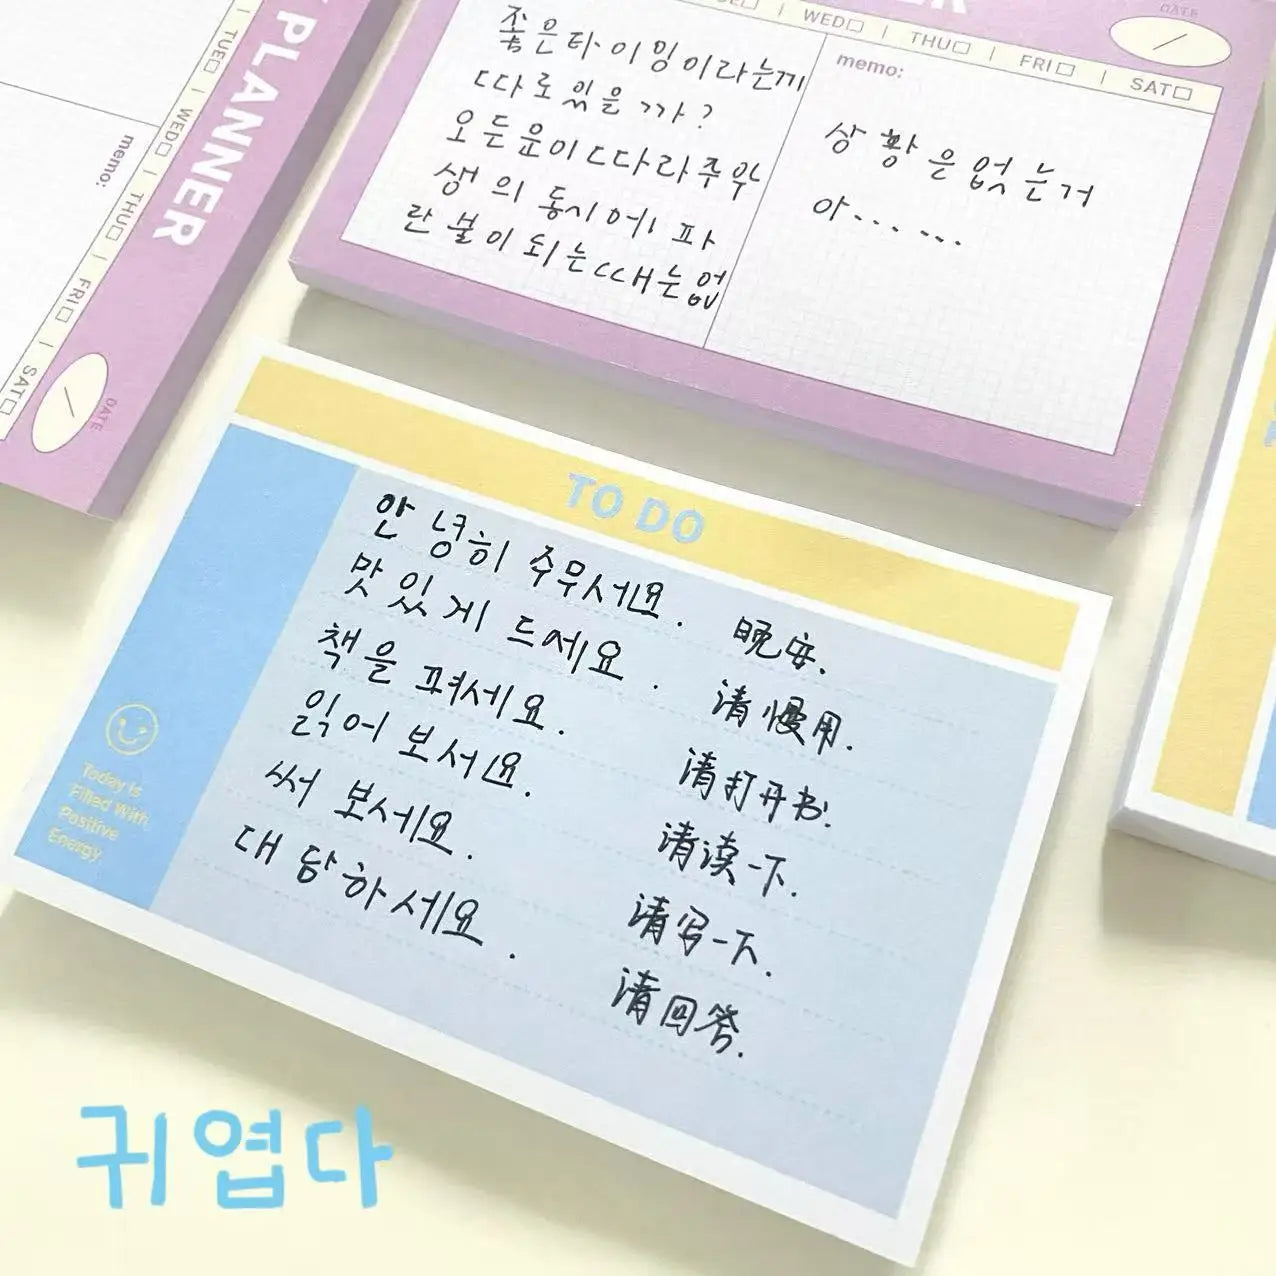 PLANNER
TUE | WED | THU | FRI | SAT
memo:
DATE
WED | THU | FRI | SAT
DATE
좋은타이밍이라는게
따로있을까?
모든운이따라주며
생의 동시에 파
란불이되는때는없
memo:
상황은없는거
야......
TO DO
안녕히 주무세요. 晚安.
맛있게 드세요. 清慢用.
책을 펴세요. 清打开书.
읽어 보서요. 清读一下.
써 보세요. 清写一下.
대답하세요. 清回答.
Today is
Filled With
Positive
Energy
귀엽다